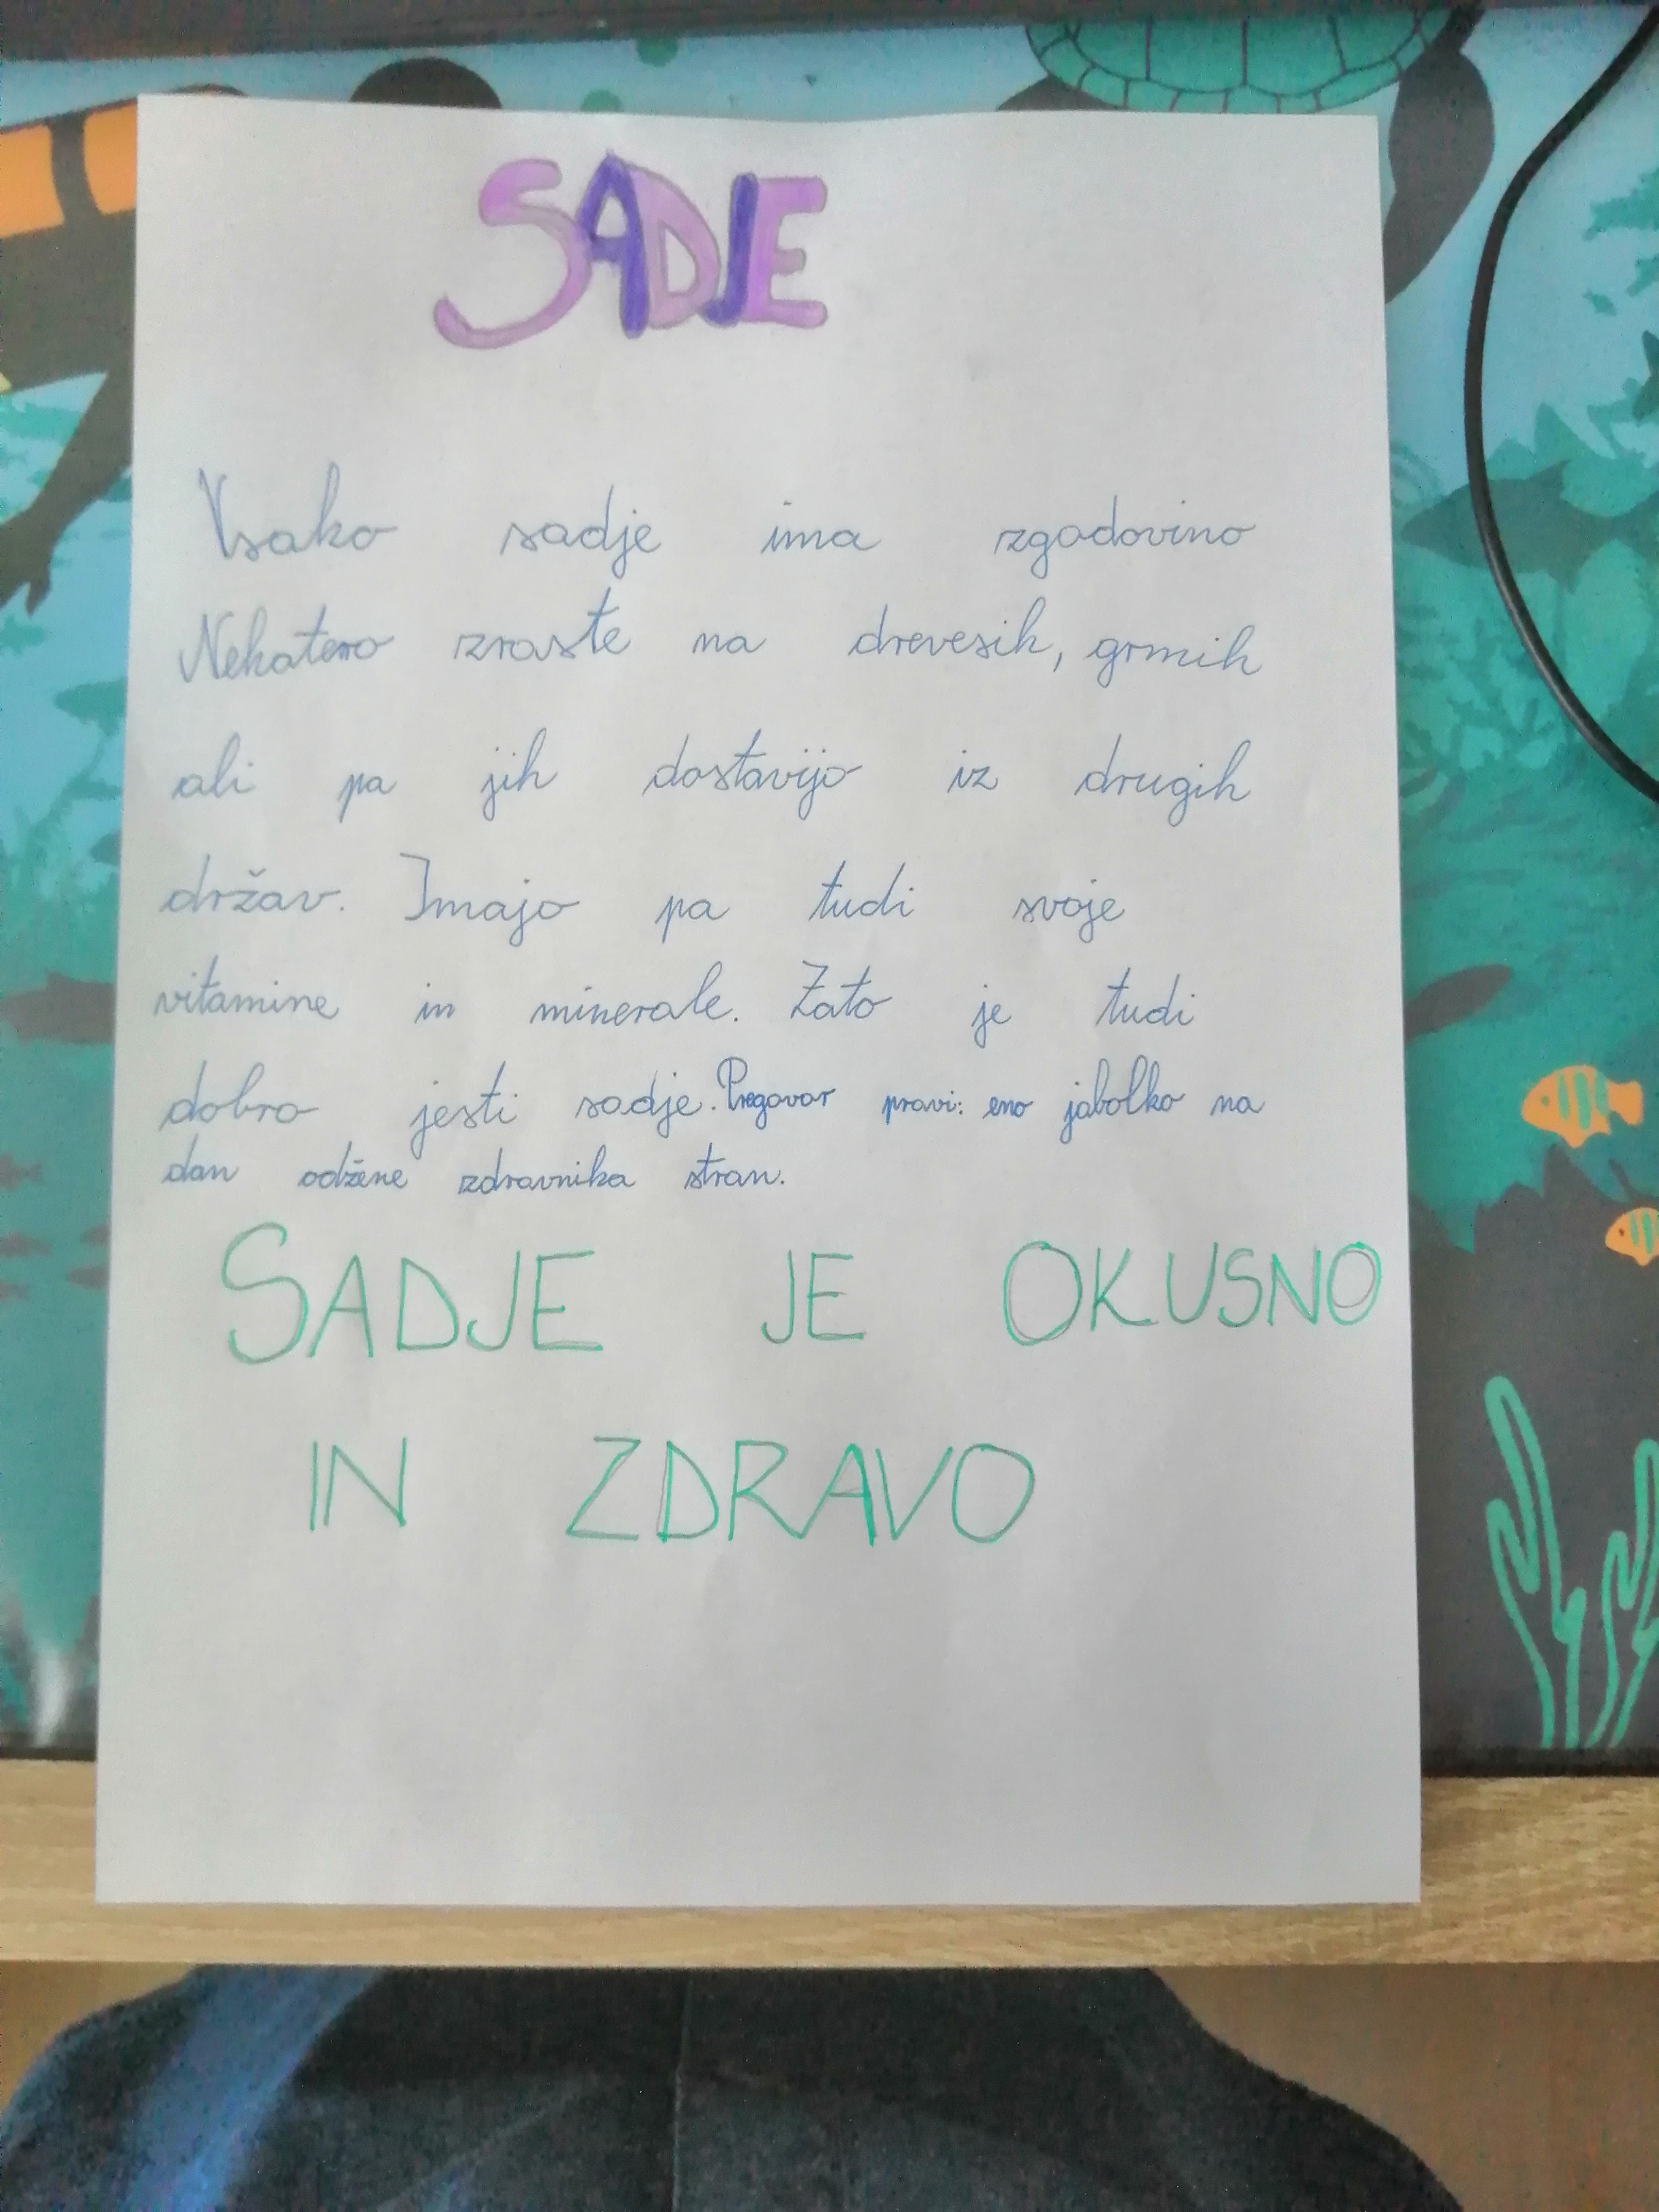 SADJE
Vsako sadje ima zgodovino
Nekatero zraste na drevesih, grmih
ali pa jih dostavijo iz drugih
držav. Imajo pa tudi svoje
vitamine in minerale. Zato je tudi
dobro jesti sadje. Pregovor pravi: eno jabolko na
dan odžene zdravnika stran.
SADJE JE OKUSNO
IN ZDRAVO